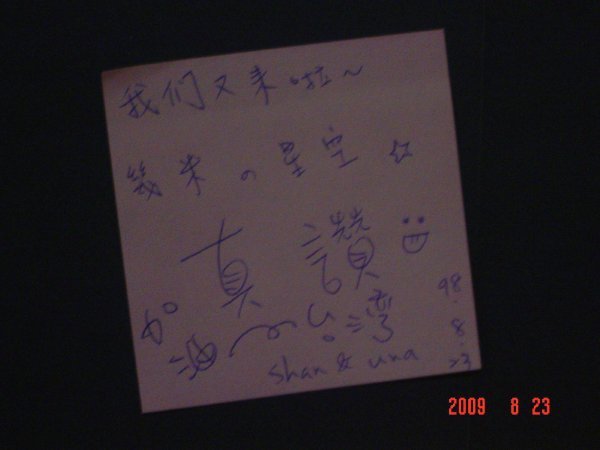 我们又来啦~
幾米の星空☆
真讚 :D
加油~台灣
98.8.23
shan & una
2009 8 23